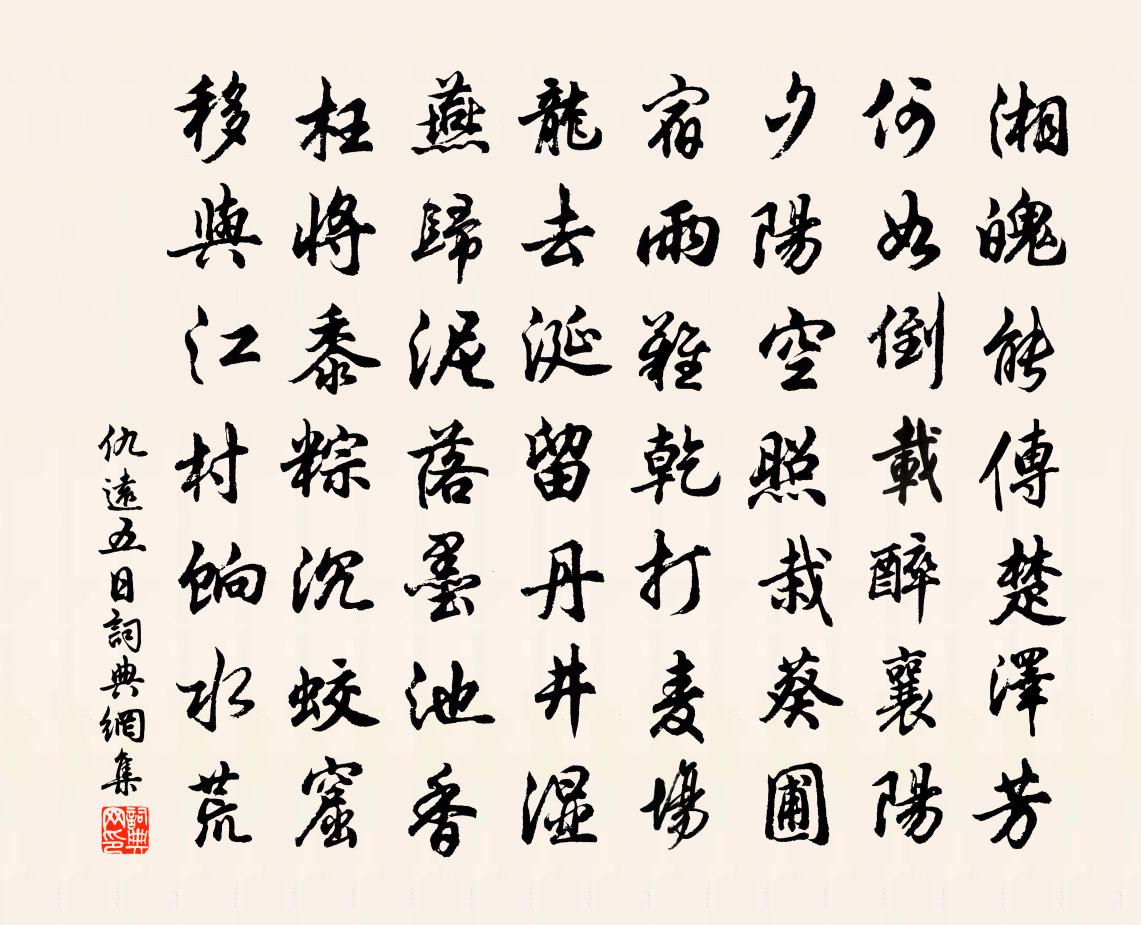 湘魄能傳楚澤芳
何如倒載醉襄陽
夕陽空照栽葵圃
宿雨難乾打麥場
龍去涎留丹井濕
燕歸泥落墨池香
枉將黍粽沉蛟窟
移與江村餉水荒
仇遠五日詞典網集
詞典
网印